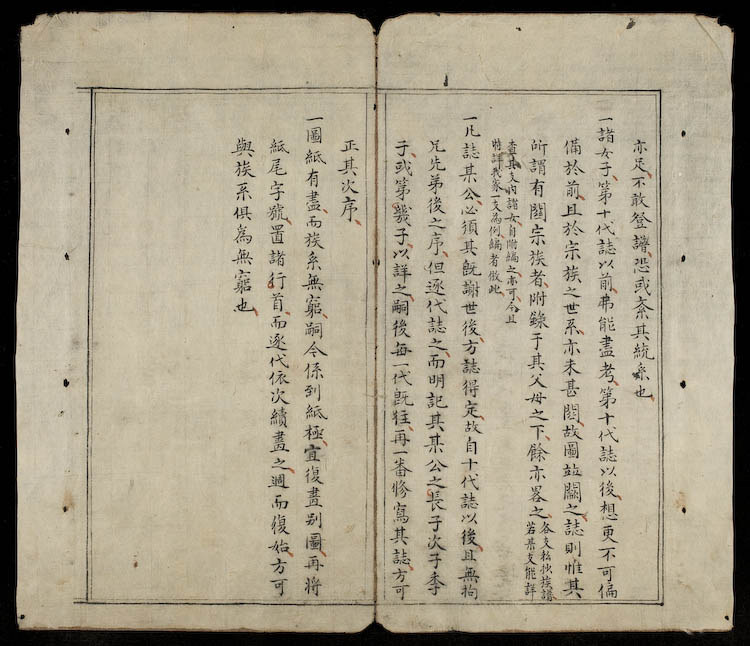 亦足不敢登譜恐或紊其統系也
一諸女子第十代誌以前弗能盡考第十代誌以後想更不可偏
備於前且於宗族之世系亦未甚関故圖並闕之誌則惟其
所謂有関宗族者附錄于其父母之下餘亦畧之各支私抄族譜
若某支能詳
查其支内諸女自附編之亦可今且
特詳我家一支為例編者倣此
一凡誌某公必須其既謝世後方誌得定故自十代誌以後且無拘
兄先弟後之序但逐代誌之而明記其某公之長子次子季
子或第幾子以詳之嗣後每一代既徃再一番修寫其誌方可
正其次序
一圖紙有盡而族系無窮嗣今係到紙極宜復畫别圖再將
紙尾字號置諸行首而逐代依次續畫之週而復始方可
與族系俱為無窮也